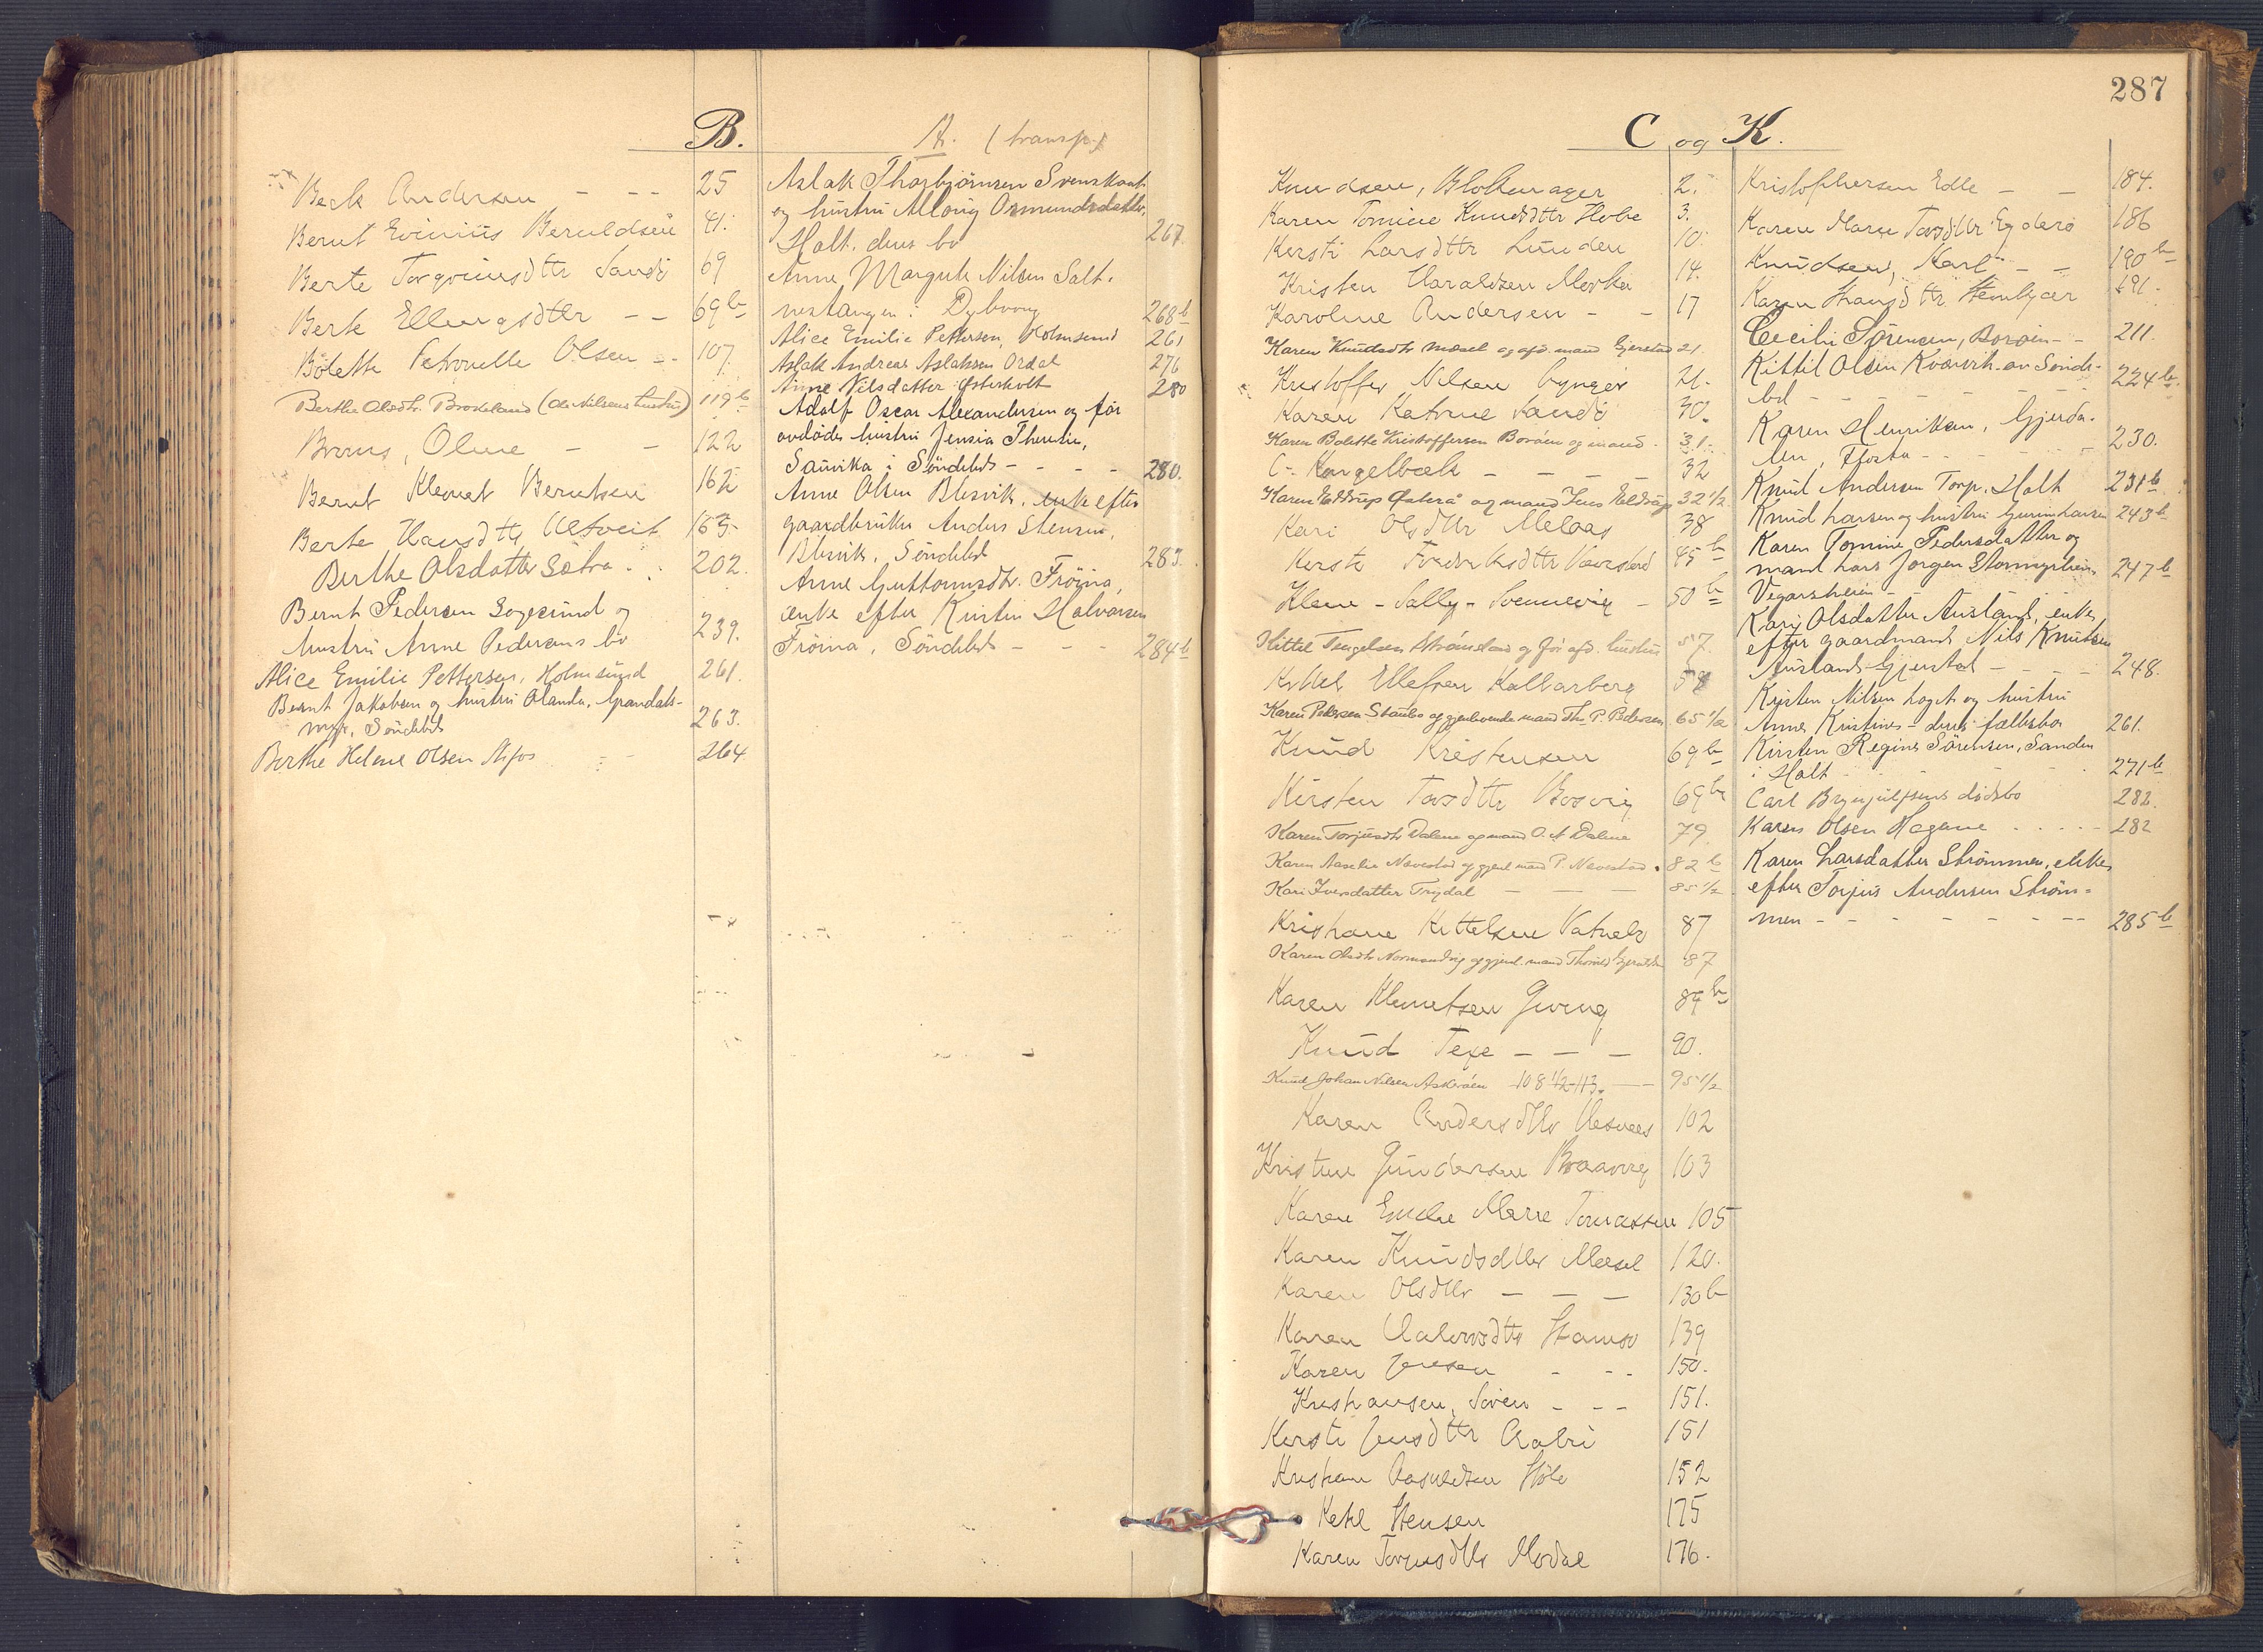 B.
Beck Andersen - - - 25
Bernt Evinius Beruldsen 41.
Berte Torgrimsdttr Sandö 69
Berte Ellingsdttr - - 69b
Bolette Petronelle Olsen - - 107
Berthe Olsdtr. Brokeland (Ole Nilsens hustru) 119b
Broms, Oline - - 122
Bernt Klemet Berntsen 162
Berte Hansdttr Ulltveit 165
Berthe Olsdatter Sætra . . 202.
Bernt Pedersen Sagesund og
hustru Anne Pedersens bo 239.
Alice Emilie Pettersen, Holmsund 261.
Bernt Jakobsen og hustru Olanda, Grandals-
myr, Söndeled 263.
Berthe Helene Olsen Aifos - 264.
A. (transp.)
Aslak Thorbjörnsen Svenskaas
og hustru Allong Osmundsdatter,
Holt. deres bo 267.
Anne Margrete Nilsen Salt-
nestangen i Dybvaag 268b
Alice Emilie Pettersen, Holmsund 261
Aslak Andreas Aslaksen Ordal 276
Anne Nilsdatter Østerholt 280
Adolf Oscar Alexandersen og før
avdøde hustru Jensia Therese,
Sandvika i Söndeled - - - - 280.
Anne Olsen Blesvik, enke efter
gaardbruker Anders Stensen,
Blesvik, Söndeled 283.
Anne Guttormsdtr. Fröina,
enke efter Kristen Halvorsen
Fröina, Söndeled - - - 284b
287
C og K.
Knudsen, Blokmager 2.
Karen Tomine Knudsdttr Hobe 3.
Kersti Larsdttr Lunden 10.
Kristen Haraldsen Mørka 14.
Karoline Andersen - - 17
Karen Knudsdtr Mæsel og afd. mand Gjerstad 21.
Kristoffer Nilsen Lynger 21.
Karen Katrine Sandö 30.
Karen Bolette Kristoffersen Borøen og mand - 31.
C. Kangelbæk - - - 32
Karen Eldrup Østerå og mand Jens Eldrup 32 1/2
Kari Olsdttr Melaas 38
Kersti Fredriksdttr Vaarstad 45b
Klem - Sally - Svennevig - 50b
Kittel Tengelsen Strömland og før afd. hustru 57.
Kittel Ellefsen Kallarberg 58
Karen Pedersen Staubo og gjenlevende mand Th. P. Pedersen 65 1/2
Knud Kristensen 69b
Kirsten Torsdttr Bosvig 69b
Karen Torjusdtr Dalene og mand O. A. Dalene 79.
Karen Aaselie Nævestad og gjenl. mand P. Nævestad 82b
Kari Iversdatter Trydal - - - 85 1/2
Kristiane Kittelsen Vatnele 87
Karen Olsdtr Normandvig og gjenl. mand 87
Karen Klemetsen Gjeving 89b
Knud Texe - - - 90.
Knud Johan Nilsen Askerøen 108 1/2-113. - 95 1/2
Karen Andersdttr Vesnees 102
Kristine Gundersen Braavig 103
Karen Emelie Marie Tomassen 105
Karen Knudsdttr Mæsel 120.
Karen Olsdttr - - - 130b
Karen Halvorsdttr Stamsø 139
Karen Jensen - - - 150.
Kristiansen, Søren - - - 151.
Kersti Jensdttr Aabri 151
Kristian Aasuldsen Høle 152
Ketil Stensen 175
Karen Torjusdttr Modal 176.
Kristophersen Edle - - 184.
Karen Maren Torsdttr Egderö 186
Knudsen, Karl - - 190b
Karen Hansdttr Stenbjær 191.
Cecilie Sørensen, Borøen - - 211.
Kittil Olsen Kvarvik av Sönde-
led - - - - - 224b
Karen Henriksen, Gjerda-
len, Flosta - - - - - 230.
Knud Andersen Torp. Holt 231b
Knud Larsen og hustru Gurine Larsen 243b
Karen Tomine Pedersdatter og
mand Lars Jorgen Stormyrheien
Vegarsheien - - - 247b
Kari Olsdatter Ausland, enke
efter gaardmand Nils Knutsen
Ausland - Gjerstad - - - - 248.
Kristen Nilsen Laget og hustru
Anne Kristines - deres fællesbo 261.
Kirsten Regine Sörensen, Sanden
i Holt - - - 271b
Carl Brynjulfsens dödsbo 282.
Karen Olsen Hagane - - - - - 282
Karen Larsdatter Strömmen, enke
efter Torjus Andersen Ström-
men - - - - - - - - 285b